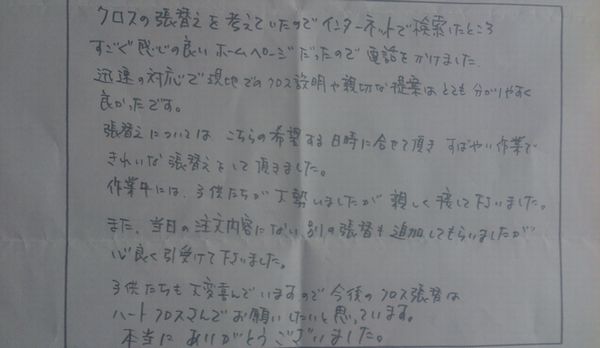 クロスの張替えを考えていたのでインターネットで検索したところ
すごく感じの良いホームページだったので電話をかけました。
迅速の対応で現地でのクロス説明や親切な提案はとても分かりやすく
良かったです。
張替えについては こちらの希望する日時に合せて頂き すばやい作業で
きれいな張替えをして頂きました。
作業中には、子供たちが大勢いましたが 親しく接して下いました。
また、当日の注文内容にない別の張替も追加してもらいましたが
心良く引受けて下いました。
子供たちも大変喜んでいますので今後のクロス張替は
ハートクロスさんでお願いしたいと思っています。
本当にありがとうございました。